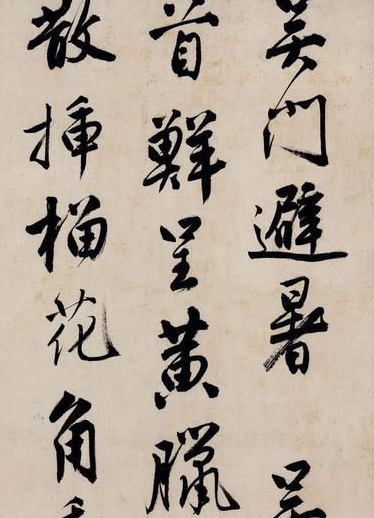 吳門避暑
首鮮呈黃臘
散插榴花角